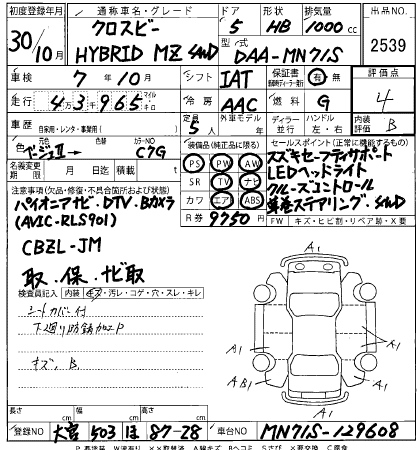 初度登録年月 通称車名・グレード ドア 形状 排気量 出品NO.
30/10月 クロスビー HYBRID MZ 4WD 5 HB 1000cc 2539
型式 DAA-MN71S
車検 7年10月 シフト IAT 保証書 有 無 評価点
走行 43千965 マイル キロ 冷房 AAC 燃料 G 4
車歴 自家用・レンタ・事業用( ) 定員 5人 外車モデル 年 ディーラー 並行 ハンドル 左・右 内装 B
色 ベージュII → 色替 カラーNO C7G 装備品(純正品に限る) セールスポイント(正常に機能するもの)
名義変更期限 月 日 積載 PS PW AW スズキセーフティサポート
注意事項(欠品・修復・不具合箇所および状態) SR TV ナビ LEDヘッドライト
パイオニアナビ・DTV・Bカメラ カワ エアB ABS クルーズコントロール
(AVIC-RLS901) R券 9750円 革巻ステアリング. 4WD
FW キズ・ヒビ割・リペア跡・X要
CBZL-JM
取・保・ナビ取
検査員記入 内装 キズ・汚レ・コゲ・穴・スレ・キレ
シートカバー付
下廻り防錆加工P
キズ、B.
A1
A1
A1
A1
AB1
A1
A1
長さ cm 幅 cm 高さ cm
登録NO 大宮 503 ほ 87-28 車台NO MN71S-129608
P.要塗装 W.波有り XX.取替済 A.線キズ B.ヘコミ S.サビ X.要交換 C.腐食